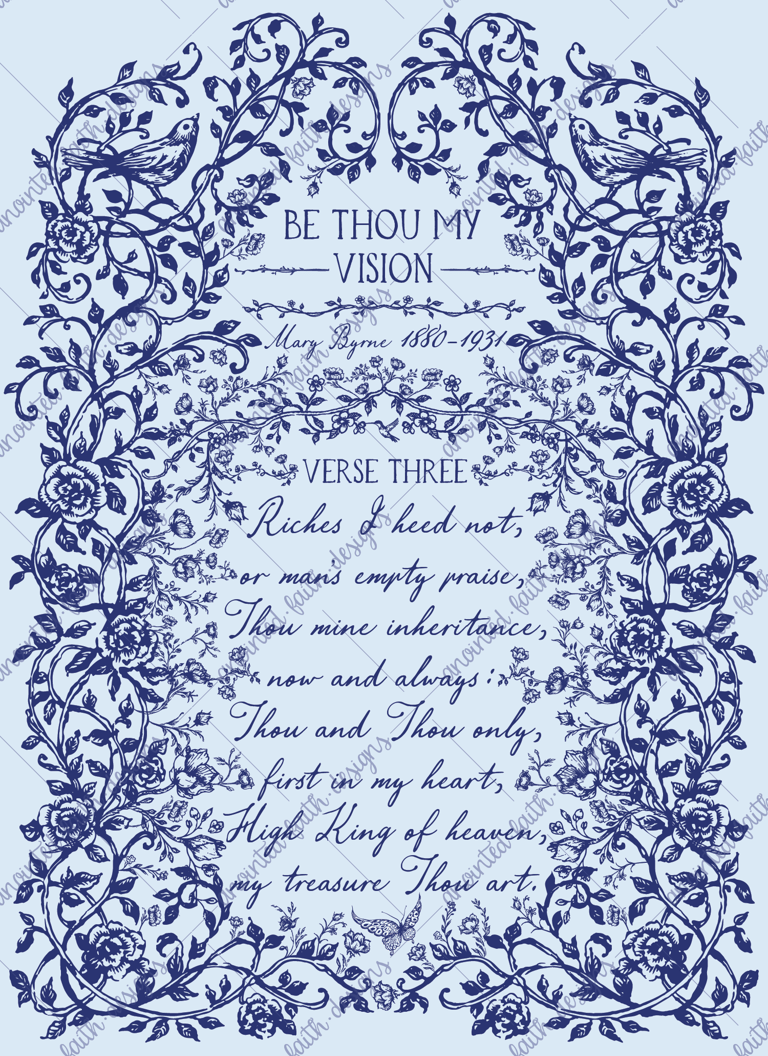 BE THOU MY
VISION
Mary Byrne 1880-1931
VERSE THREE
Riches I heed not,
or man's empty praise,
Thou mine inheritance,
now and always:
Thou and Thou only,
first in my heart,
High King of heaven,
my treasure Thou art.
anointed·faith·designs